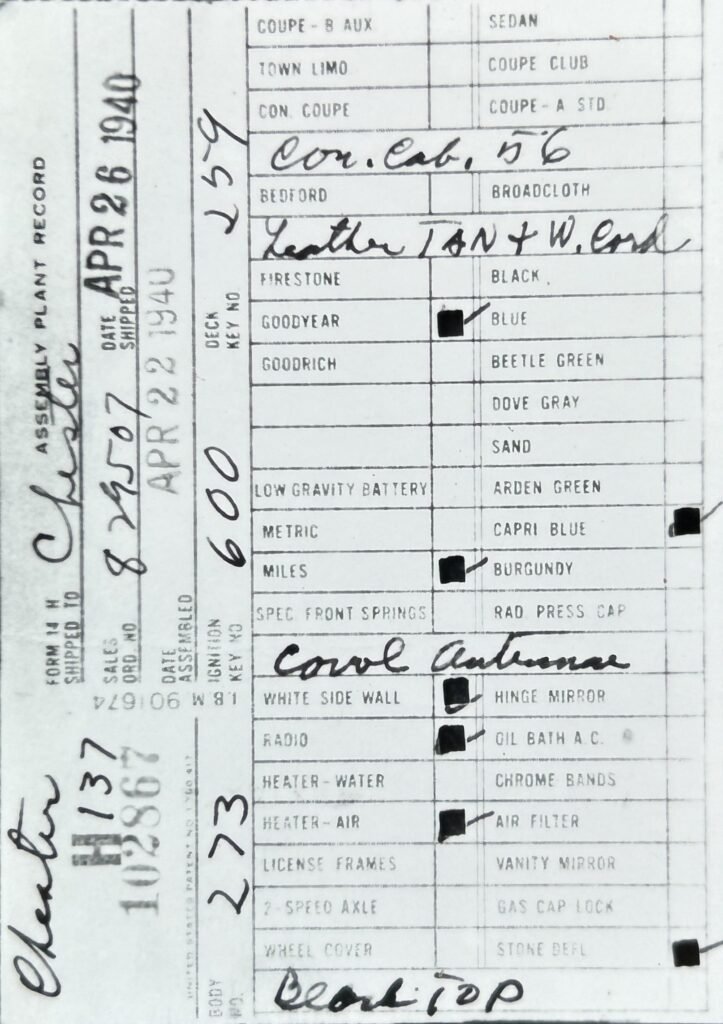 ASSEMBLY PLANT RECORD
FORM 14 H
SHIPPED TO Chester
SALES ORD. NO 829507
DATE SHIPPED APR 26 1940
DATE ASSEMBLED APR 22 1940
IGNITION KEY NO 600
DECK KEY NO 259
I.B M 901674
H 137
102867
UNITED STATES PATENT NO. 1,760,417
BODY NO. 273
COUPE - B AUX SEDAN
TOWN LIMO COUPE CLUB
CON. COUPE COUPE - A STD.
Con. Cab. 56
BEDFORD BROADCLOTH
Leather TAN + W. Cord
FIRESTONE BLACK
GOODYEAR BLUE
GOODRICH BEETLE GREEN
DOVE GRAY
SAND
LOW GRAVITY BATTERY ARDEN GREEN
METRIC CAPRI BLUE
MILES BURGUNDY
SPEC. FRONT SPRINGS RAD. PRESS CAP
Cowl Antennae
WHITE SIDE WALL HINGE MIRROR
RADIO OIL BATH A.C.
HEATER-WATER CHROME BANDS
HEATER-AIR AIR FILTER
LICENSE FRAMES VANITY MIRROR
2-SPEED AXLE GAS CAP LOCK
WHEEL COVER STONE DEFL
Black TOP